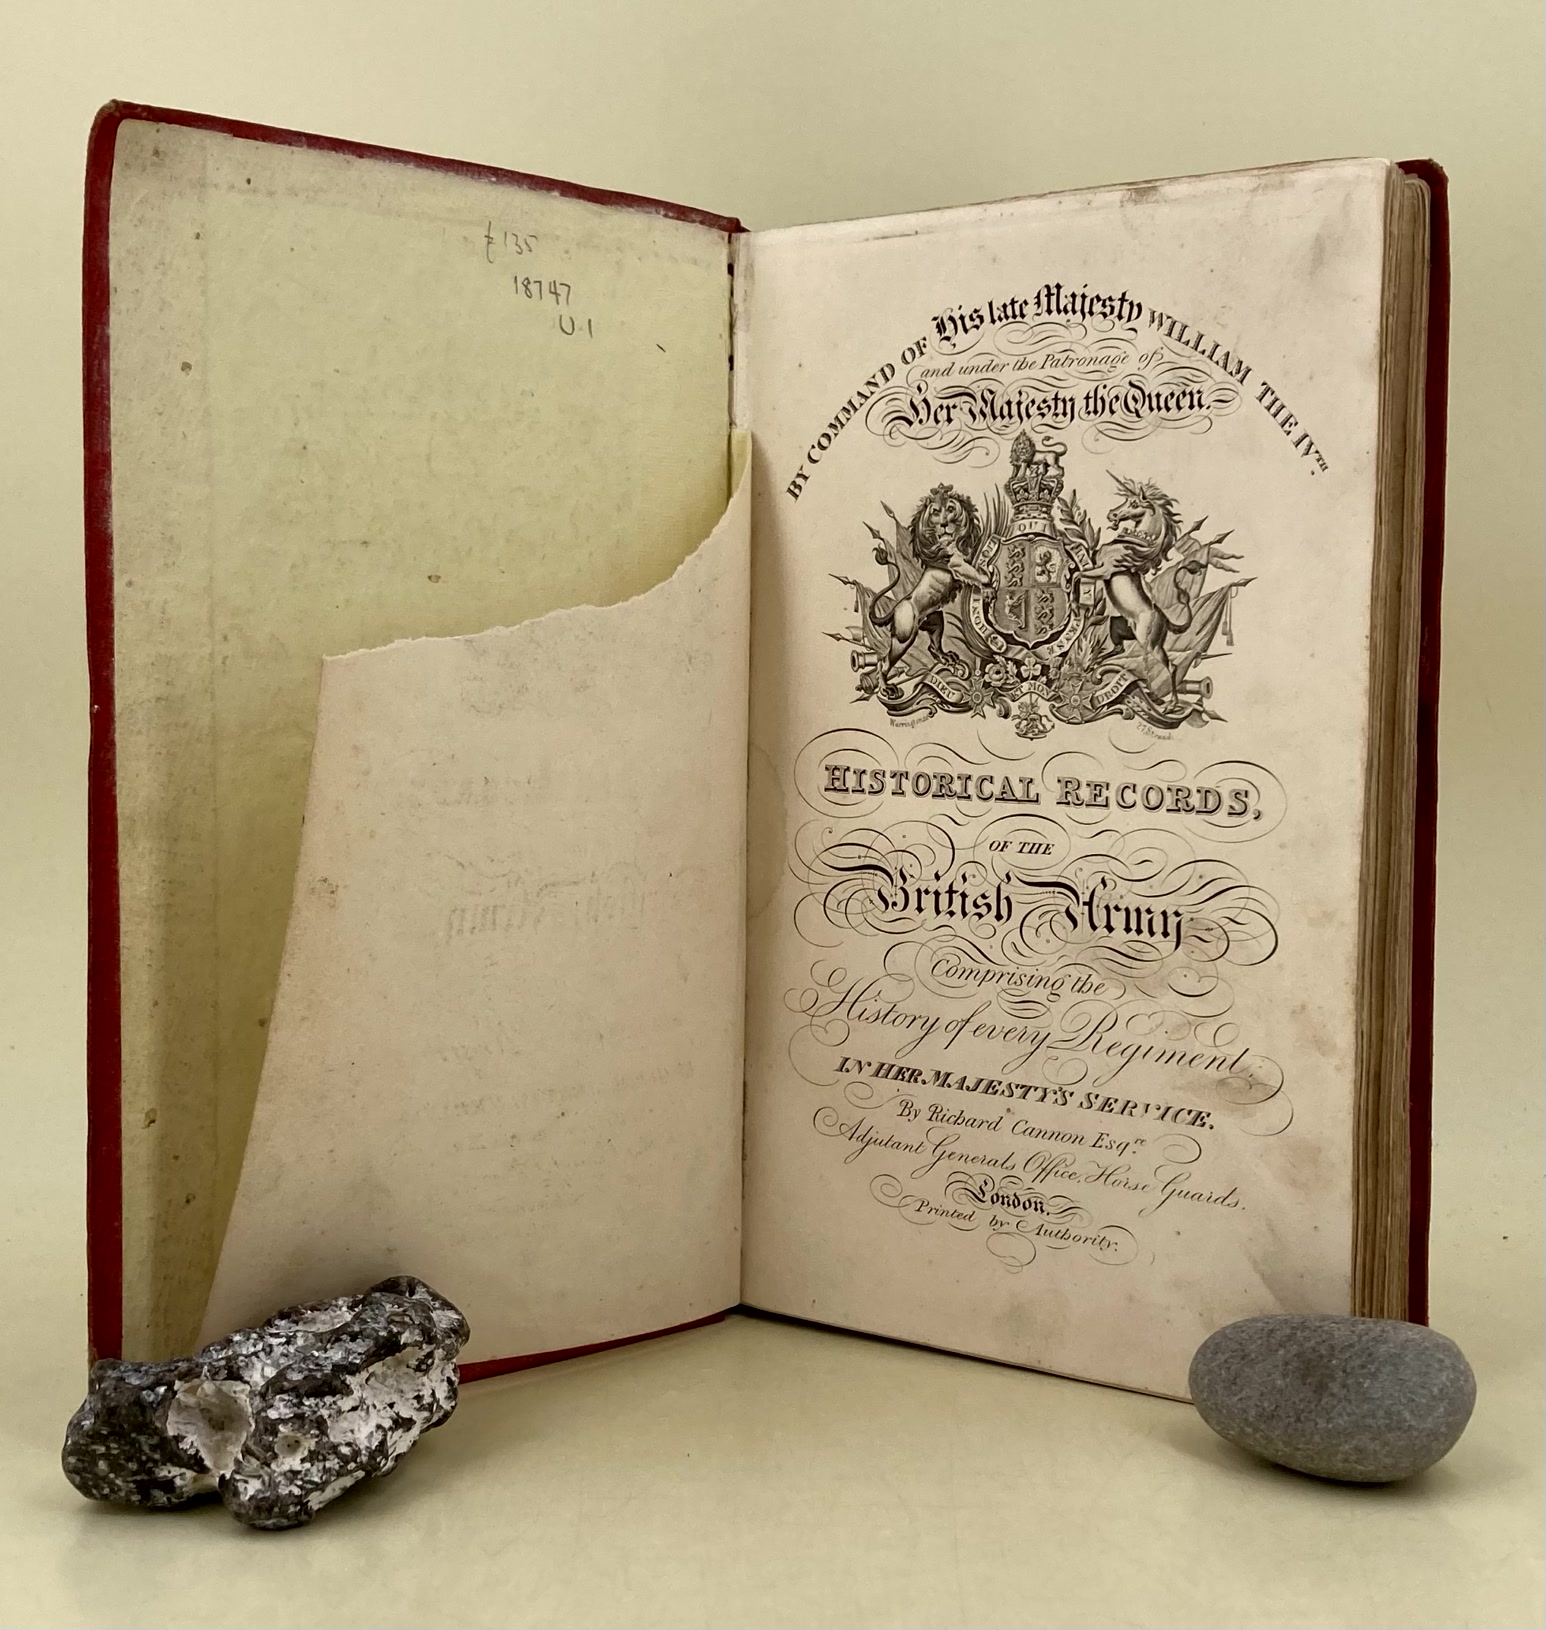 £135
18747
U.1
BY COMMAND OF His late Majesty WILLIAM THE IVTH.
and under the Patronage of
Her Majesty the Queen.
HONI
DIEU ET MON DROIT
HISTORICAL RECORDS,
OF THE
British Army
Comprising the
History of every Regiment
IN HER MAJESTY'S SERVICE.
By Richard Cannon Esqre.
Adjutant Generals Office, Horse Guards.
London.
Printed by Authority.